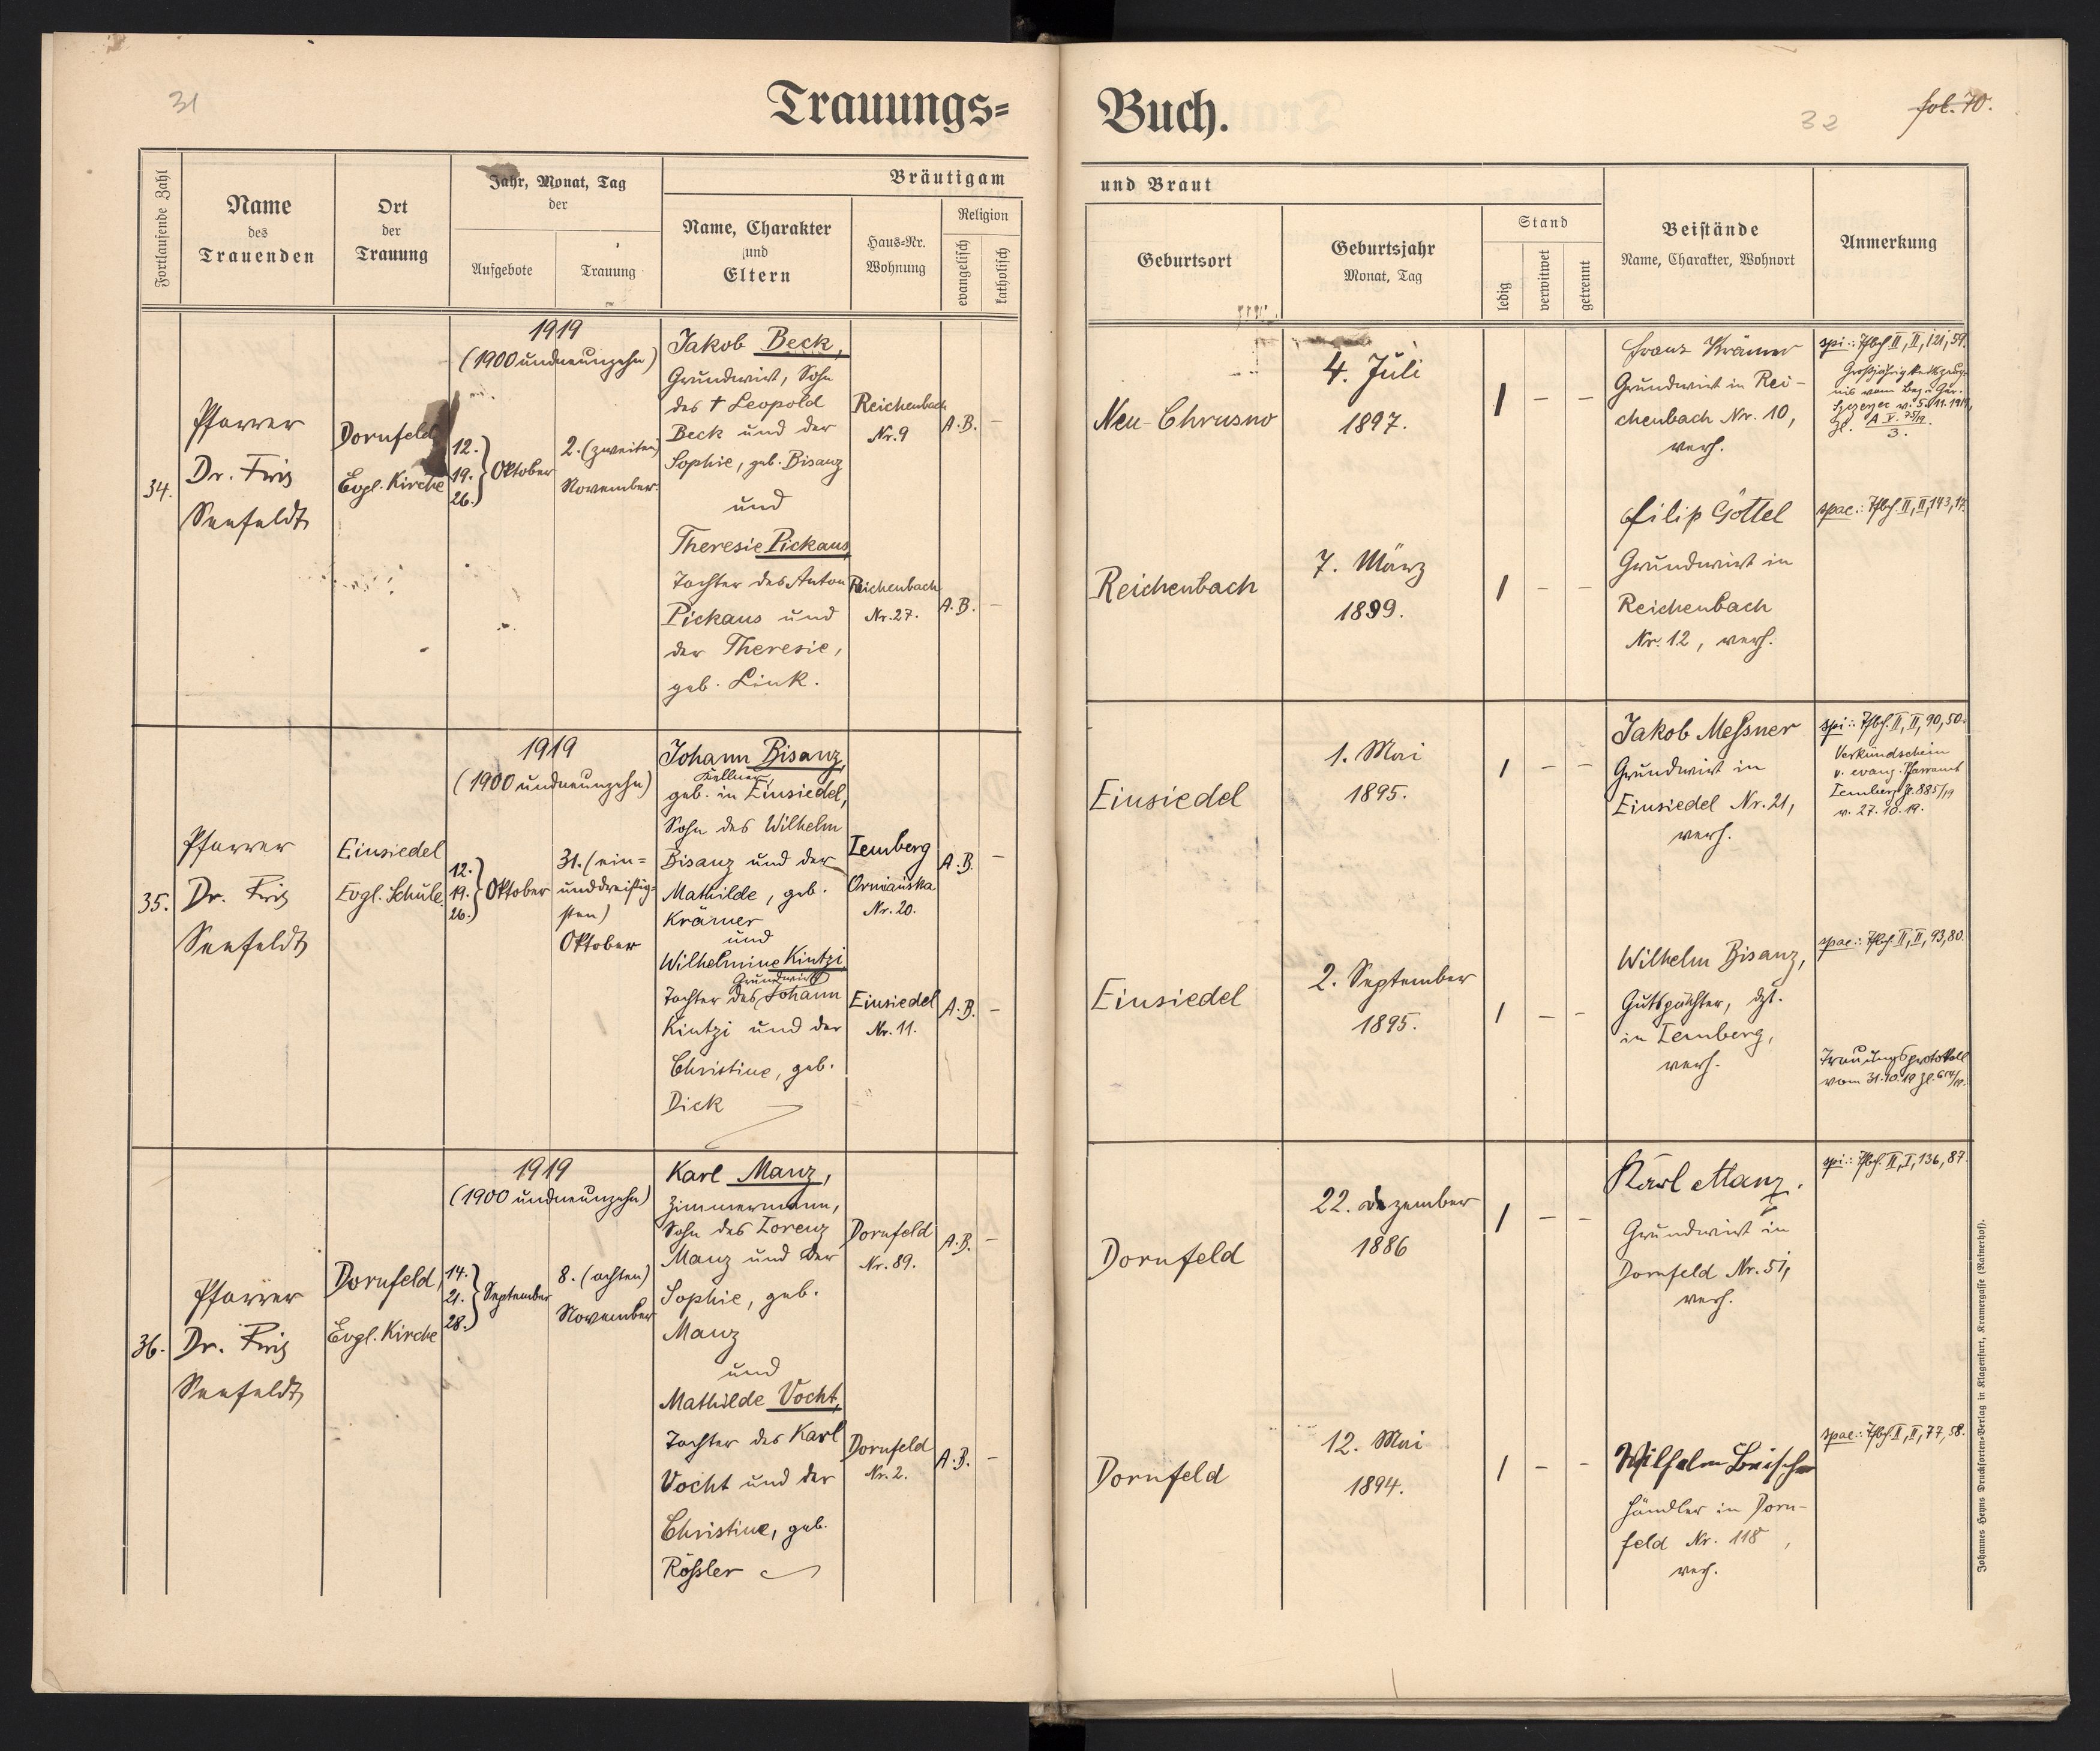 31
Trauungs=
Buch.
32
fol. 70.
Fortlaufende Zahl
Name
des
Trauenden
Ort
der
Trauung
Jahr, Monat, Tag
der
Aufgebote
Trauung
Bräutigam
Name, Charakter
und
Eltern
Haus-Nr.
Wohnung
Religion
evangelisch
katholisch
und Braut
Geburtsort
Geburtsjahr
Monat, Tag
Stand
ledig
verwitwet
getrennt
Beistände
Name, Charakter, Wohnort
Anmerkung
34.
Pfarrer
Dr. Friz
Seefeldt
Dornfeld
Evgl. Kirche
1919
(1900 undneunzehn)
12.
19. } Oktober
26.
2. (zweiten)
November.
Jakob Beck,
Grundwirt, Sohn
des † Leopold
Beck und der
Sophie, geb. Bisanz
und
Theresie Pickaus,
Tochter des Anton
Pickaus und
der Theresie,
geb. Link.
Reichenbach
Nr. 9
A.B. –
Reichenbach
Nr. 27.
A.B. –
Neu-Chrusno
4. Juli
1897.
1 – –
Reichenbach
7. März
1899.
1 – –
Franz Krämer
Grundwirt in Rei-
chenbach Nr. 10,
verh.
Filip Göttel
Grundwirt in
Reichenbach
Nr. 12, verh.
spi.: Pfbf. II, II, 121, 59.
Großjährigkeitszeug-
nis vom Bez. Ger.
Szczerzec v. 5.11.1919,
Zl. A V. 75/19
3.
spae.: Pfbf. II, II, 143, 17.
35.
Pfarrer
Dr. Friz
Seefeldt
Einsiedel
Evgl. Schule
1919
(1900 undneunzehn)
12.
19. } Oktober
26.
31. (ein=
unddreißig=
sten)
Oktober
Johann Bisanz,
Kellner,
geb. in Einsiedel,
Sohn des Wilhelm
Bisanz und der
Mathilde, geb.
Krämer
und
Wilhelmine Kintzi,
Grundwirts
Tochter des Johann
Kintzi und der
Christine, geb.
Dick
Lemberg
Ormiańska
Nr. 20.
A.B. –
Einsiedel
Nr. 11.
A.B. –
Einsiedel
1. Mai
1895.
1 – –
Einsiedel
2. September
1895.
1 – –
Jakob Messner
Grundwirt in
Einsiedel Nr. 21,
verh.
Wilhelm Bisanz,
Gutspächter, dzt.
in Lemberg,
verh.
spi.: Pfbf. II, II, 90, 50.
Verkündschein
v. evang. Pfarramt
Lemberg Zl. 885/19
v. 27.10.19.
spae.: Pfbf. II, II, 93, 80.
Trauungsprotokoll
vom 31.10.19 Zl.
36.
Pfarrer
Dr. Friz
Seefeldt
Dornfeld,
Evgl. Kirche
1919
(1900 undneunzehn)
14.
21. } September
28.
8. (achten)
November
Karl Manz,
Zimmermann,
Sohn des Lorenz
Manz und der
Sophie, geb.
Manz
und
Mathilde Vocht,
Tochter des Karl
Vocht und der
Christine, geb.
Rößler
Dornfeld
Nr. 89.
A.B. –
Dornfeld
Nr. 2.
A.B. –
Dornfeld
22. dezember
1886
1 – –
Dornfeld
12. Mai
1894.
1 – –
Karl Manz.
Grundwirt in
Dornfeld Nr. 51,
verh.
Wilhelm
Händler in Dorn-
feld Nr. 118,
verh.
spi.: Pfbf. II, I, 136, 87.
spae.: Pfbf. II, II, 77, 58.
Johannes Heyns Drucksorten-Verlag in Klagenfurt, Kramergasse (Rainerhof).